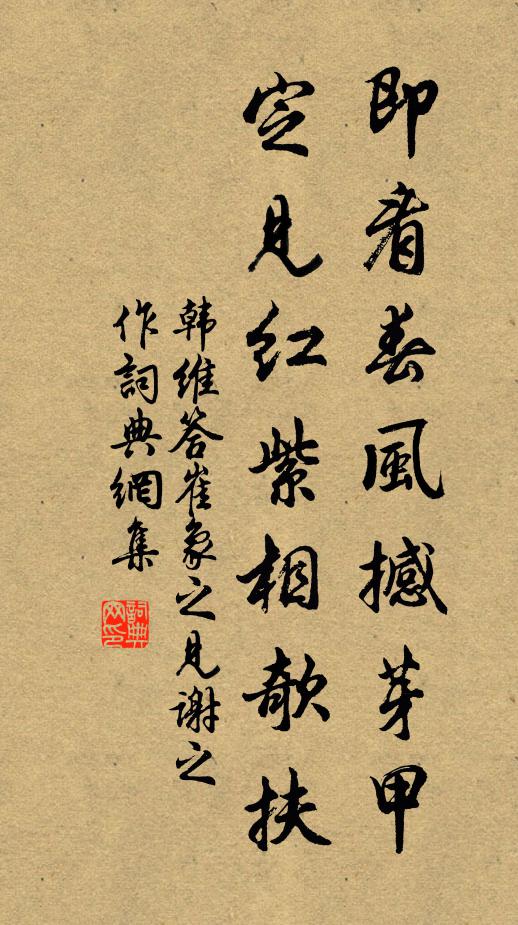 即看春風撼芽甲
定見紅紫相欹扶
韩維答崔象之見謝之
作詞典網集
詞典網印